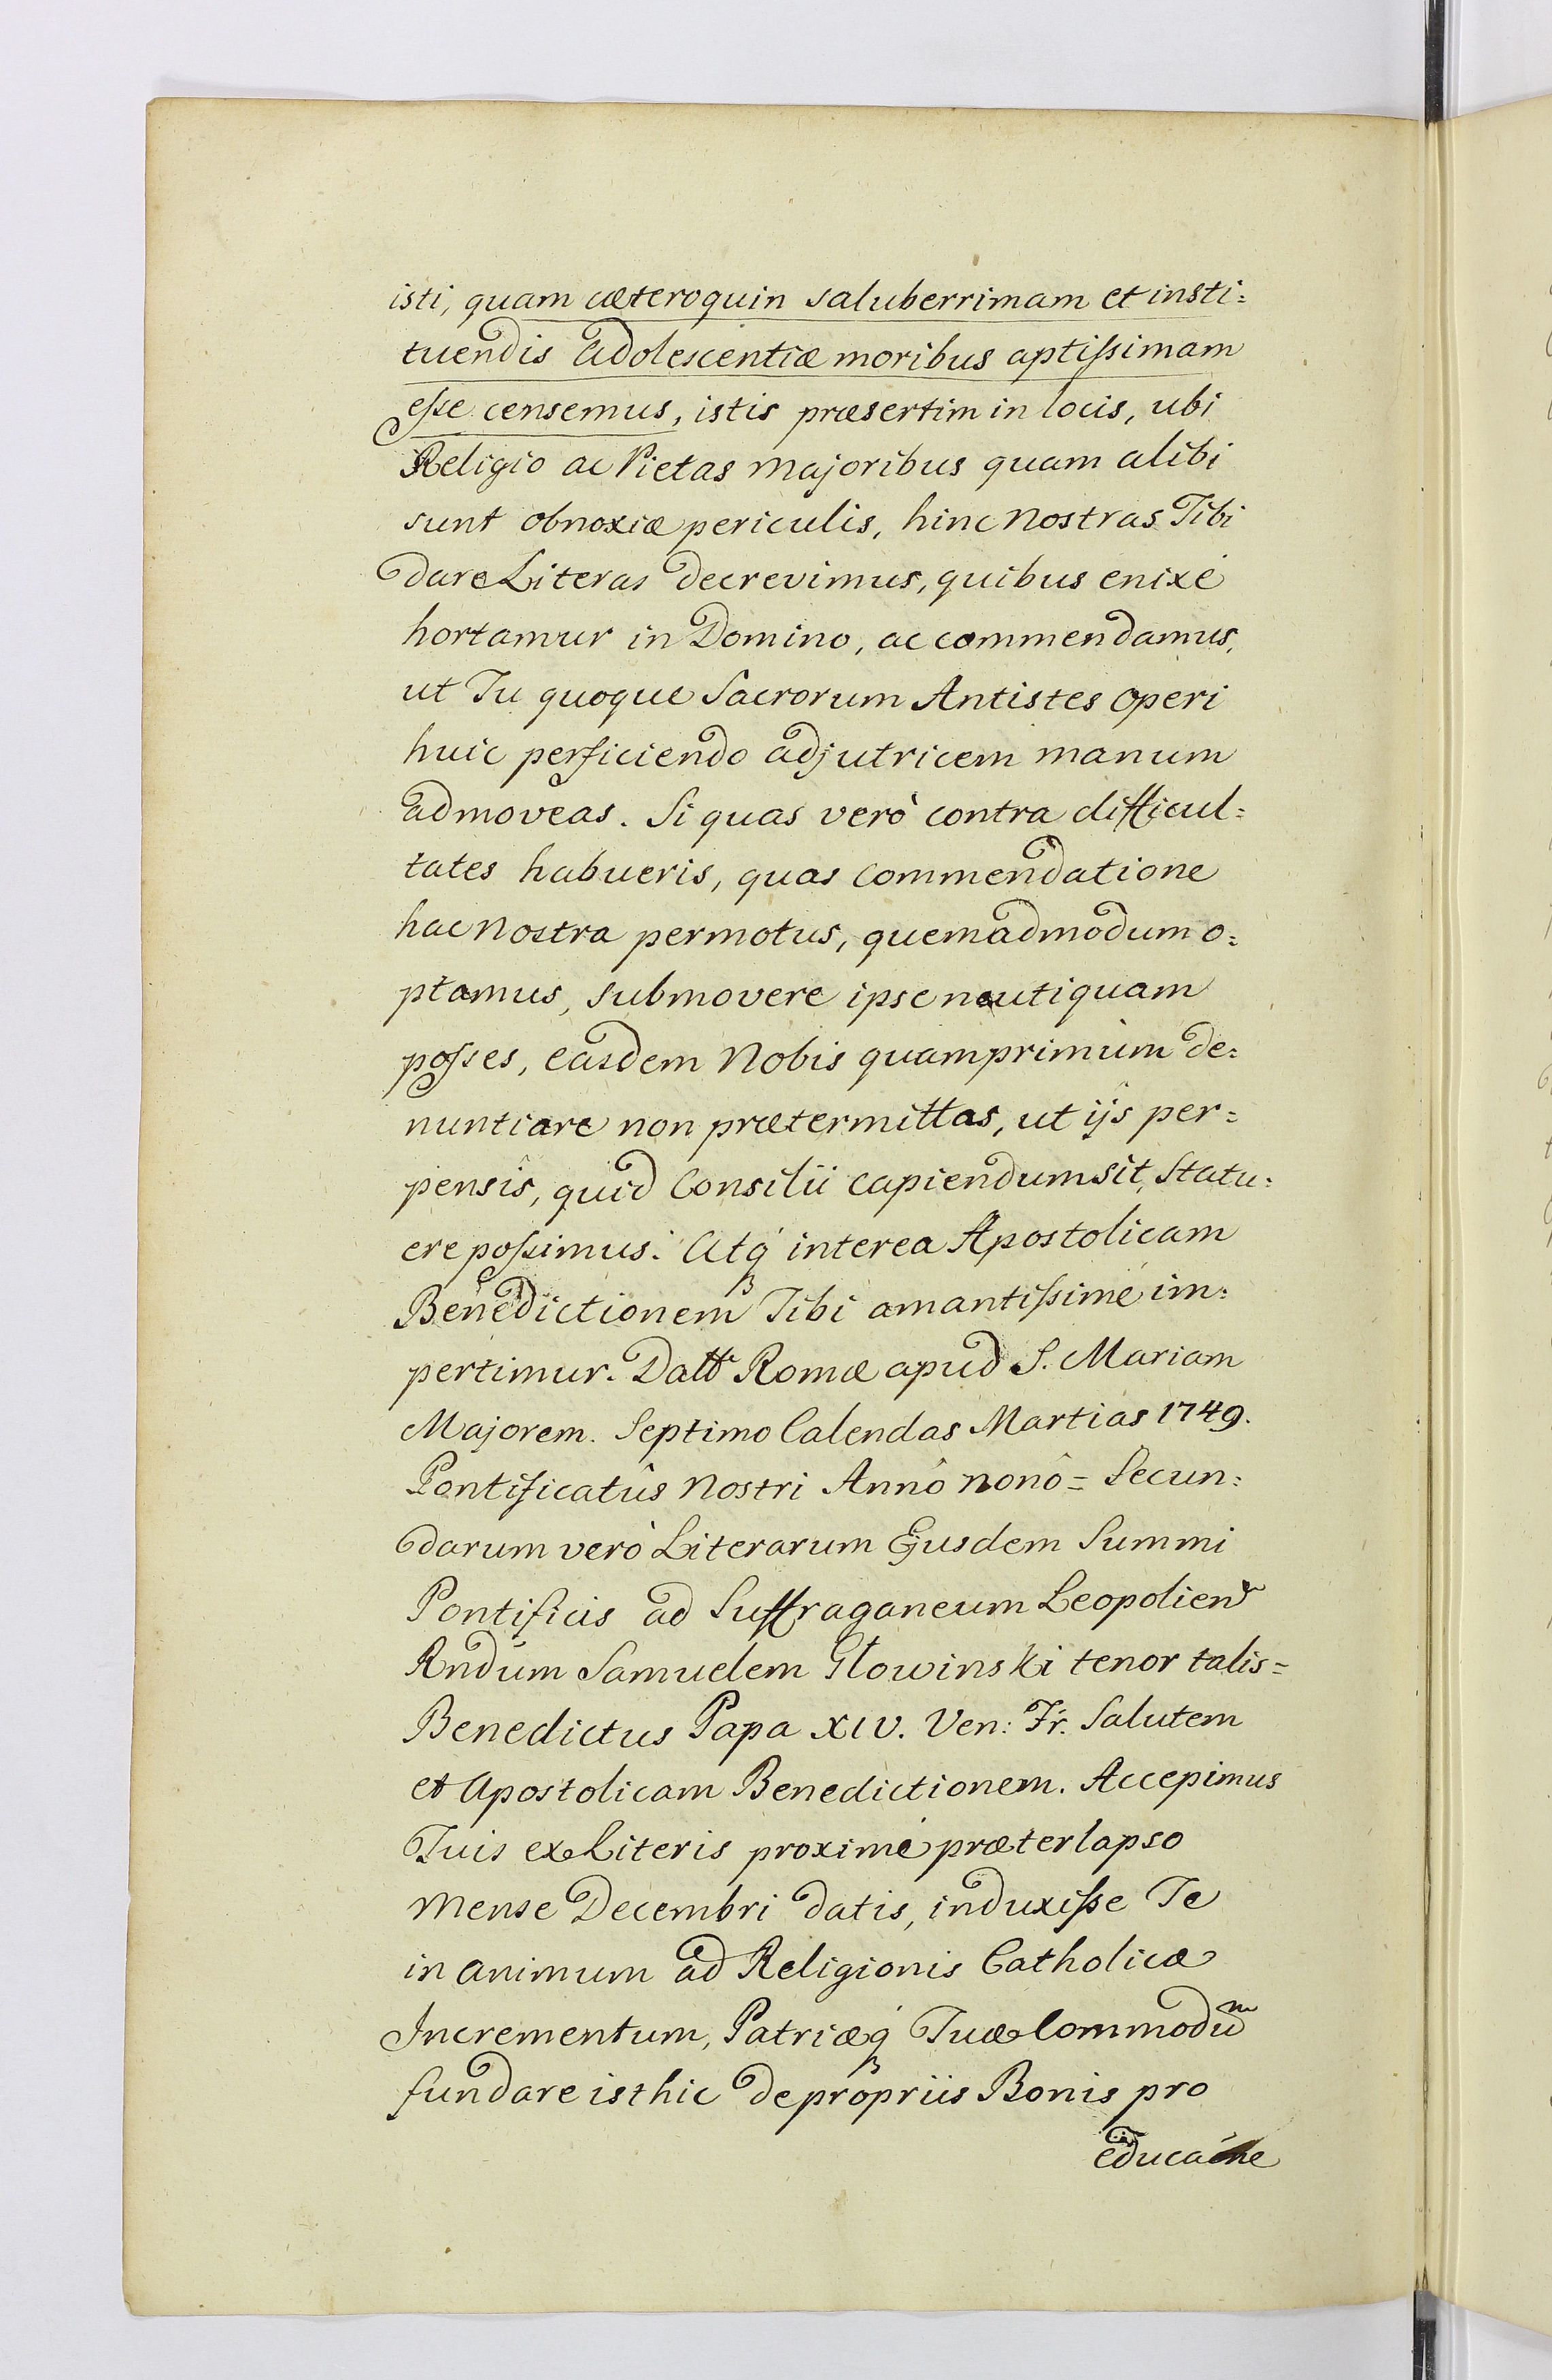 isti, quam cæteroquin saluberrimam et insti=
tuendis adolescentiæ moribus aptissimam
esse censemus, istis præsertim in locis, ubi
Religio ac Pietas majoribus quam alibi
sunt obnoxiæ periculis, hinc nostras Tibi
dare Literas decrevimus, quibus enixé
hortamur in Domino, ac commendamus,
ut Tu quoque Sacrorum Antistes operi
huic perficiendo adjutricem manum
admoveas. Si quas verò contra difficul=
tates habueris, quas commendatione
hac nostra permotus, quemadmodum o=
ptamus, submovere ipse neutiquam
posses, easdem Nobis quamprimùm de=
nuntiare non prætermittas, ut ijs per=
pensîs, quid Consilii capiendum sit, statu=
ere possimus. Atq́ interea Apostolicam
Benedictionem Tibi amantissimé im=
pertimur. Datt Romæ apud S. Mariam
Majorem. Septimo Calendas Martias 1749.
Pontificatûs nostri Annô nonô = Secun=
darum verò Literarum Ejusdem Summi
Pontificis ad Suffraganeum Leopolien
Rndum Samuelem Głowinski tenor talis =
Benedictus Papa XIV. Ven: Fr. Salutem
et Apostolicam Benedictionem. Accepimus
Tuis ex Literis proximé præterlapso
mense Decembri datis, induxisse Te
in animum ad Religionis Catholicæ
Incrementum, Patriæq́ Tuæ Commodũ
fundare isthic de propriis Bonis pro
educaóne